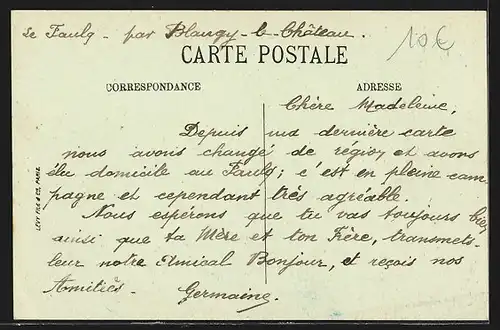 Le Faulq - par Blangy-le-Château.
10€
CARTE POSTALE
CORRESPONDANCE
ADRESSE
Chère Madeleine,
Depuis ma dernière carte
nous avons changé de région et avons
élu domicile au Faulq; c'est en pleine cam-
pagne et cependant très agréable.
Nous espérons que tu vas toujours bien
ainsi que ta Mère et ton Frère, transmets-
leur notre Amical Bonjour, et reçois nos
Amitiés. Germaine.
LÉVY FILS & Cie, PARIS